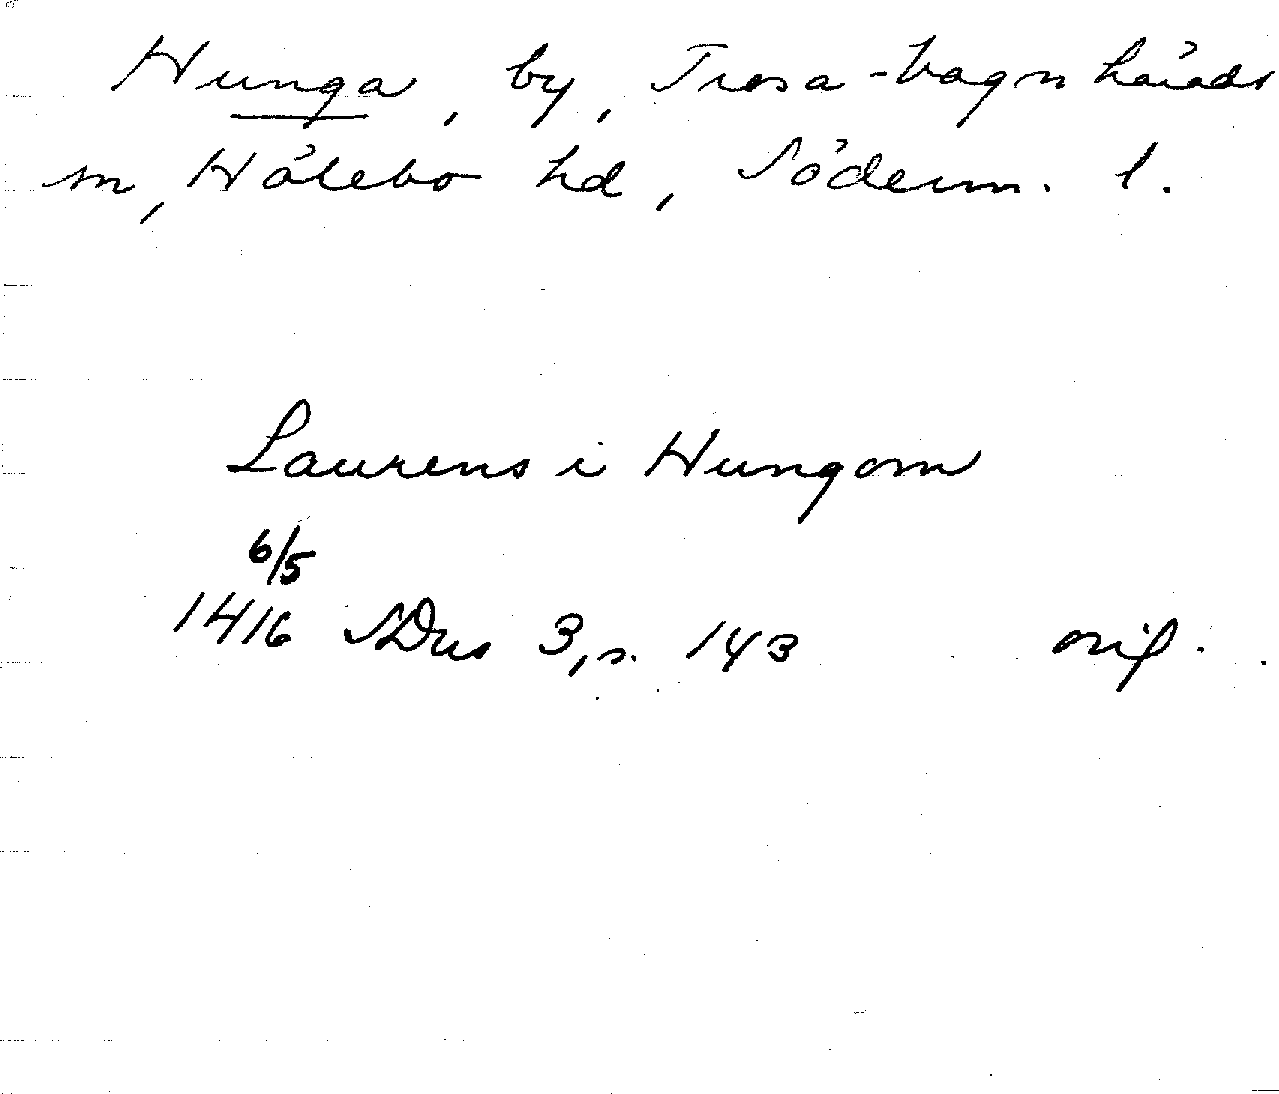 Hunga, by, Trosa-Vagnhärads
sn, Hölebo hd, Söderm. l.
Laurens i Hungom
6/5
1416 SDns 3, s. 143 orig.